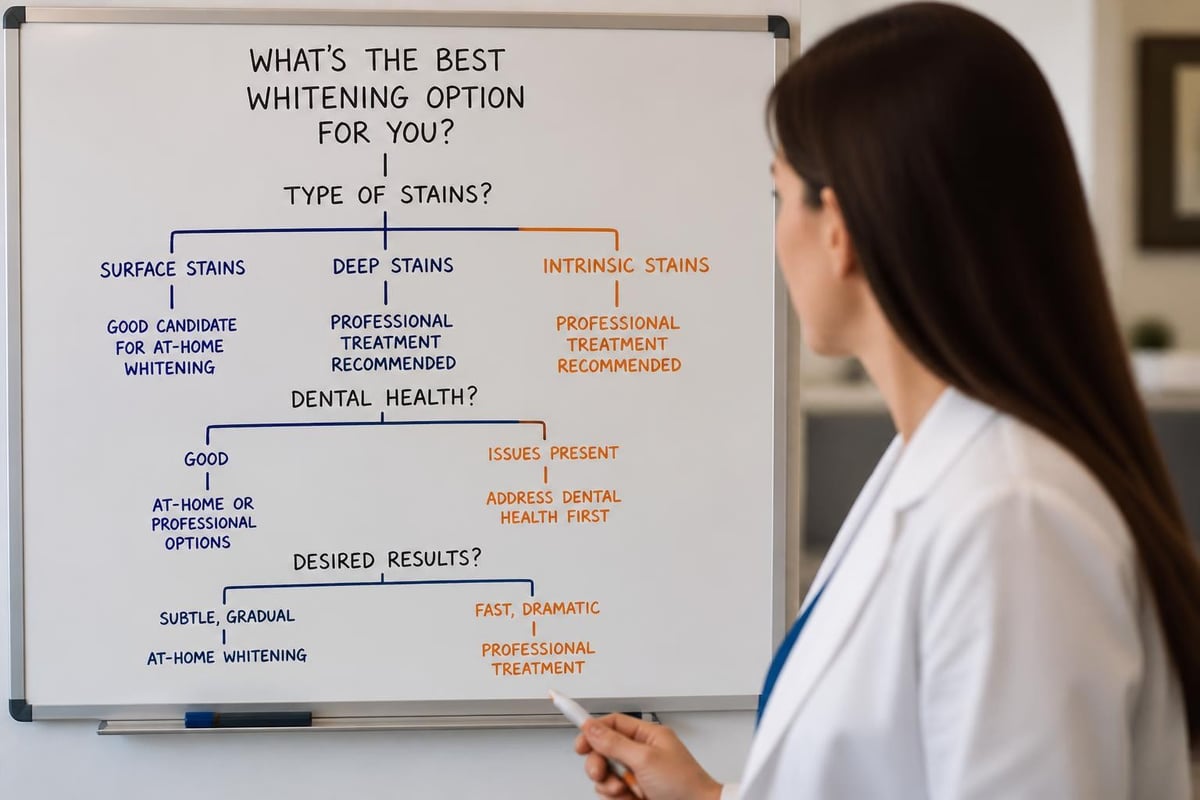 WHAT'S THE BEST
WHITENING OPTION
FOR YOU?
TYPE OF STAINS?
SURFACE STAINS
GOOD CANDIDATE
FOR AT-HOME
WHITENING
DEEP STAINS
PROFESSIONAL
TREATMENT
RECOMMENDED
INTRINSIC STAINS
PROFESSIONAL
TREATMENT
RECOMMENDED
DENTAL HEALTH?
GOOD
AT-HOME OR
PROFESSIONAL
OPTIONS
ISSUES PRESENT
ADDRESS DENTAL
HEALTH FIRST
DESIRED RESULTS?
SUBTLE, GRADUAL
AT-HOME WHITENING
FAST, DRAMATIC
PROFESSIONAL
TREATMENT